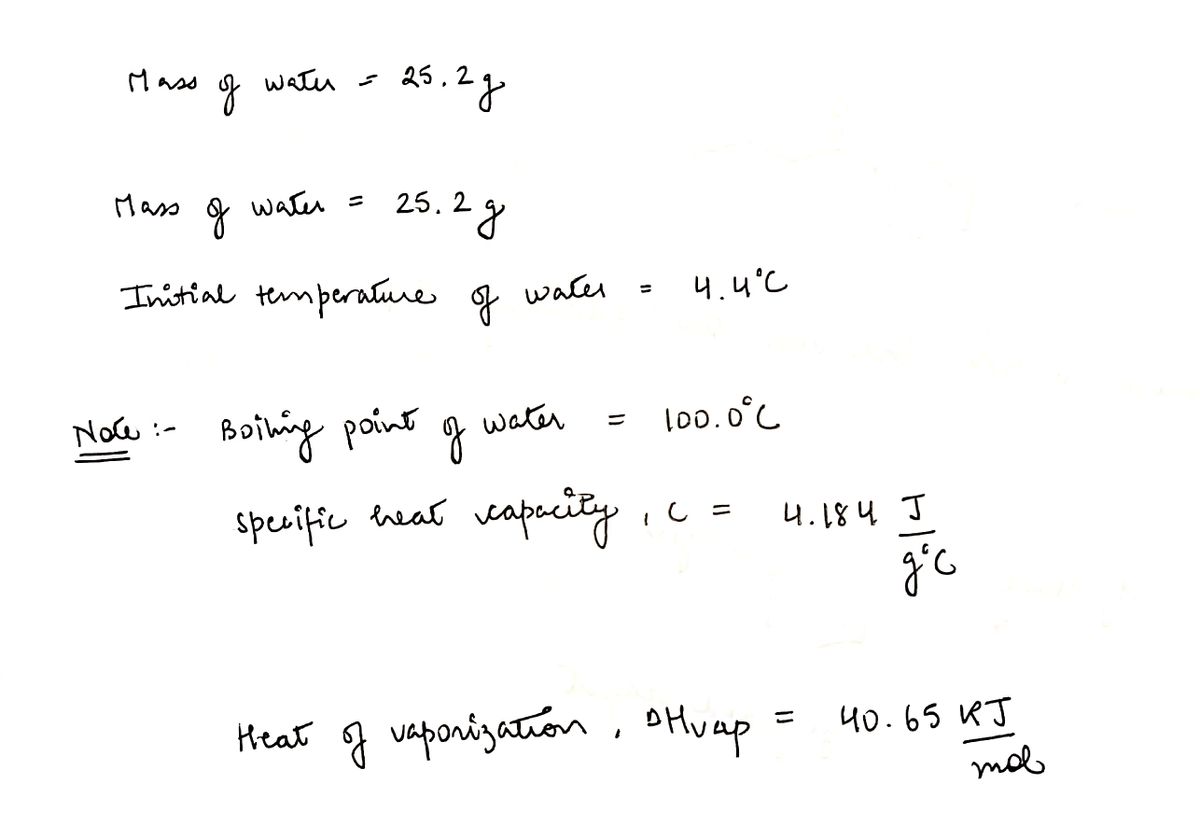 Mass of water = 25.2 g
Mass of water = 25.2 g
Initial temperature of water = 4.4°C
Note :- Boiling point of water = 100.0°C
specific heat capacity, C = 4.184 J/g°C
Heat of vaporization, ΔHvap = 40.65 KJ/mol